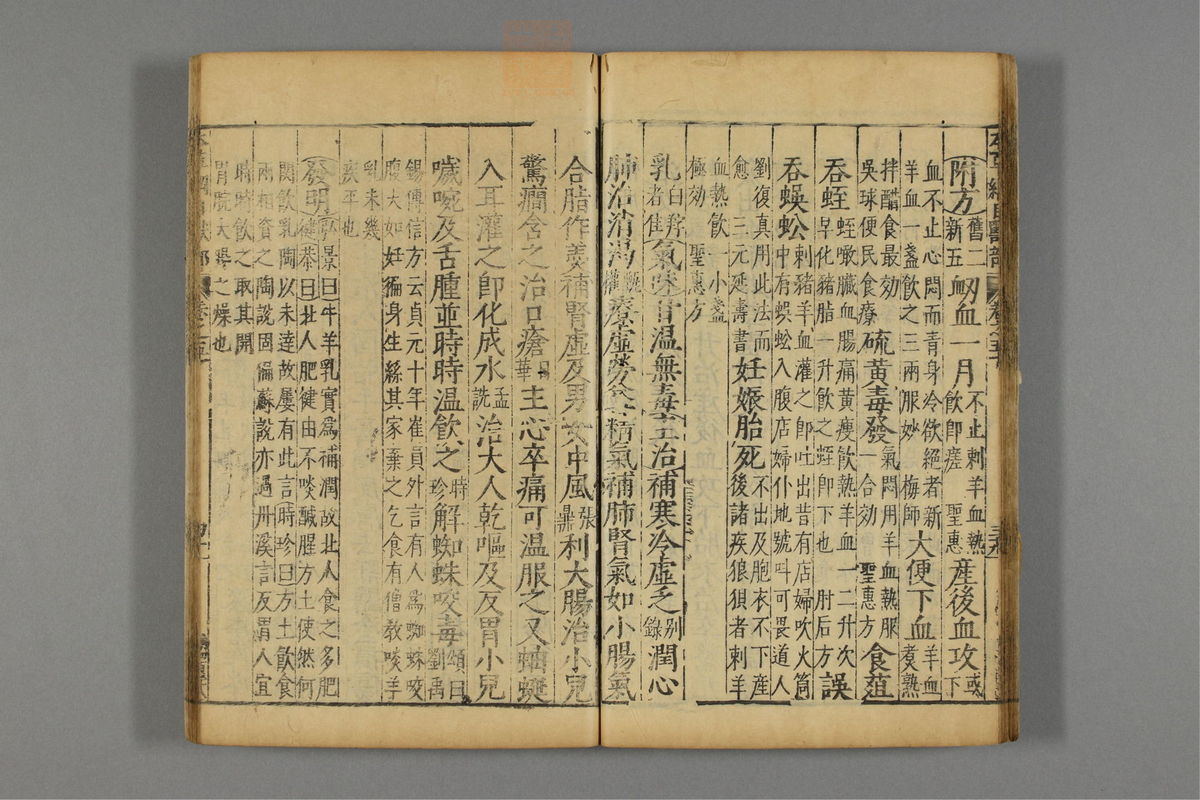 本草綱目獸部 卷之五十
附方舊二新五衂血一月不止刺羊血熱飲即瘥聖惠產後血攻或下
血不止心悶而青身冷欲絕者新羊血一盞飲之三兩服妙梅師大便下血羊血煑熟
拌醋食最効吳球便民食療硫黃毒發氣悶用羊血熱服一合効聖惠方食菹
吞蛭蛭啖臟血腸痛黃瘦飲熱羊血一二升次早化豬脂一升飲之蛭即下也肘后方誤
吞蜈蚣刺豬羊血灌之即吐出昔有店婦吹火筒中有蜈蚣入腹店婦仆地號呌可畏道人
劉復真用此法而愈三元延壽書妊娠胎死不出及胞衣不下產後諸疾狼狽者刺羊
血熱飲一小盞極効聖惠方
乳白羚者佳氣味甘温無毒主治補寒冷虛乏别錄潤心
肺治消渴甄權療虛勞益精氣補肺腎氣如小腸氣
合脂作羹補腎虛及男女中風張鼎利大腸治小兒
驚癇含之治口瘡日華主心卒痛可温服之又蚰蜒
入耳灌之即化成水孟詵治大人乾嘔及反胃小兒
噦啘及舌腫並時時温飲之時珍解蜘蛛咬毒頌曰劉禹
錫傳信方云貞元十年崔員外言有人為蜘蛛咬腹大如妊徧身生絲其家棄之乞食有僧教啖羊
乳未幾疾平也
發明弘景曰牛羊乳實為補潤故北人食之多肥健恭曰北人肥健由不啖鹹腥方土使然何
關飲乳陶以未達故屢有此言時珍曰方土飲食兩相資之陶說固偏蘇說亦過丹溪言反胃人宜
時時飲之取其開胃脘大腸之燥也